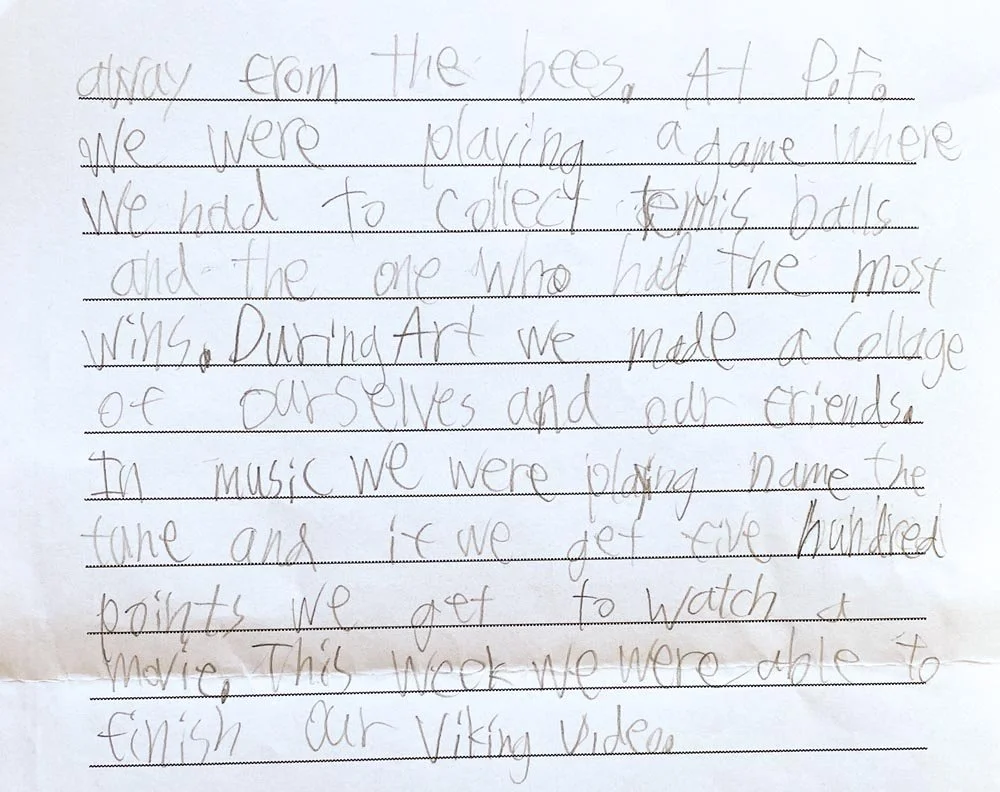 away from the bees. At P.E.
We were playing a game where
We had to collect tennis balls
and the one who had the most
wins. During Art we made a Collage
of ourselves and our friends.
In music we were playing name the
tune and if we get five hundred
points we get to watch a
movie. This week we were able to
finish our Viking video.